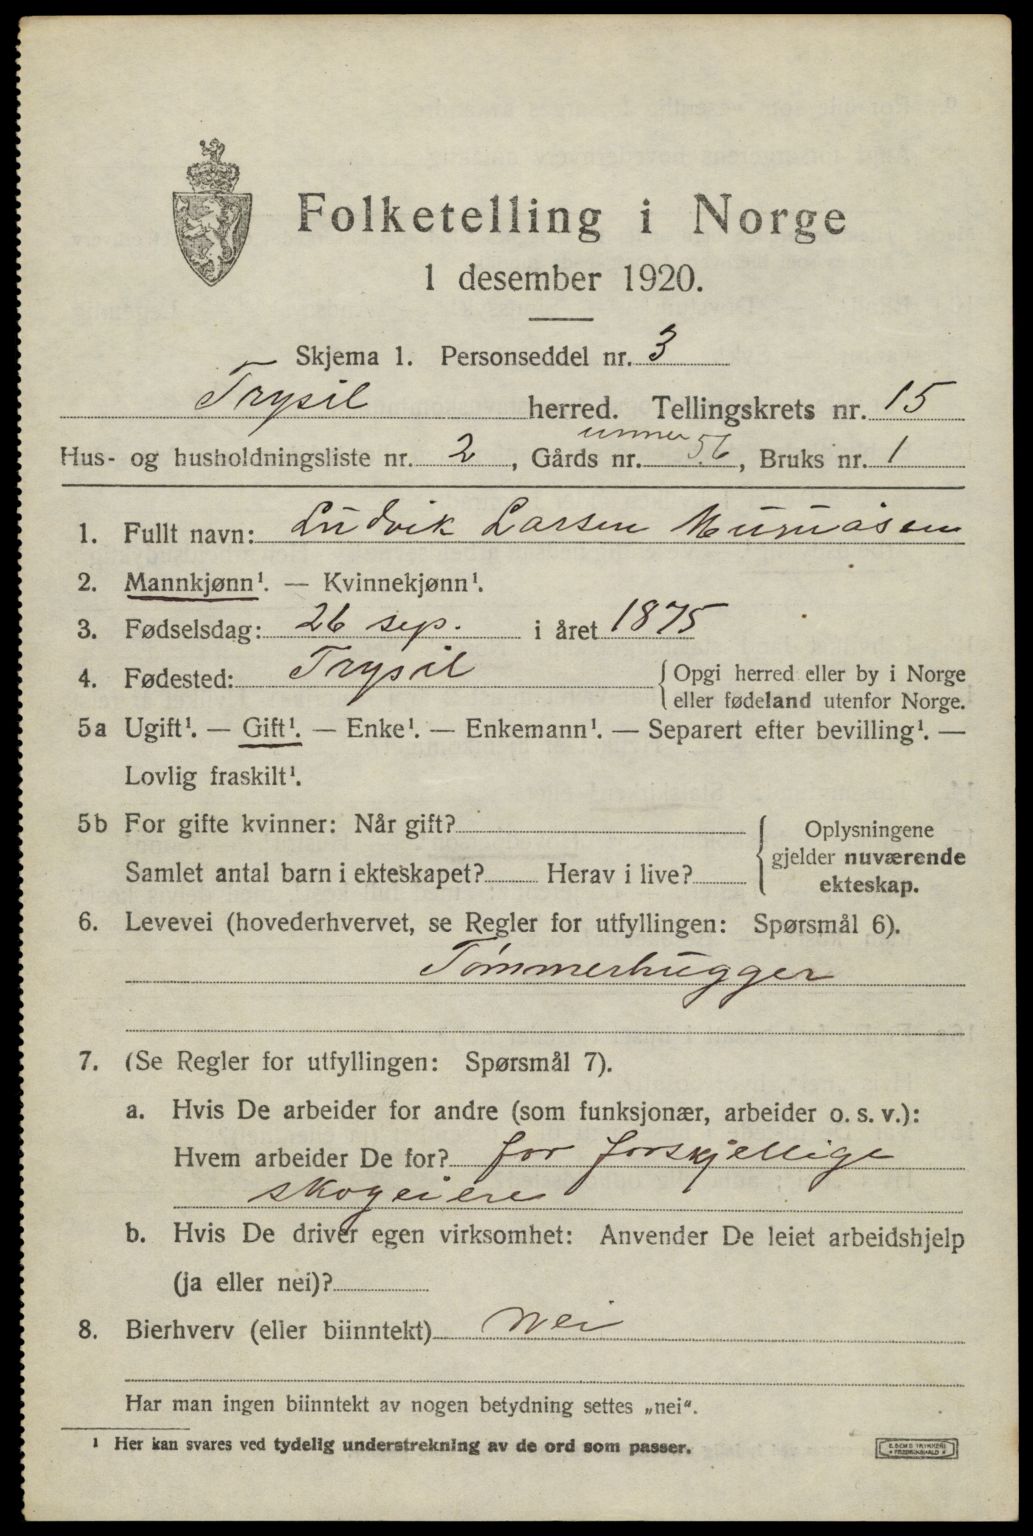 Folketelling i Norge
1 desember 1920.
Skjema 1. Personseddel nr. 3
Trysil herred. Tellingskrets nr. 15
Hus- og husholdningsliste nr. 2, Gårds nr. 56, Bruks nr. 1
1. Fullt navn: Ludvik Larsen
2. Mannkjønn¹. — Kvinnekjønn¹.
3. Fødselsdag: 26 sep. i året 1875
4. Fødested: Trysil { Opgi herred eller by i Norge
eller fødeland utenfor Norge.
5a Ugift¹. — Gift¹. — Enke¹. — Enkemann¹. — Separert efter bevilling¹. —
Lovlig fraskilt¹.
5b For gifte kvinner: Når gift? { Oplysningene
gjelder nuværende
Samlet antal barn i ekteskapet? Herav i live?
ekteskap.
6. Levevei (hovederhvervet, se Regler for utfyllingen: Spørsmål 6).
Tømmerhugger
7. (Se Regler for utfyllingen: Spørsmål 7).
a. Hvis De arbeider for andre (som funksjonær, arbeider o. s. v.):
Hvem arbeider De for? for forskjellige
skogeiere
b. Hvis De driver egen virksomhet: Anvender De leiet arbeidshjelp
(ja eller nei)?
8. Bierhverv (eller biinntekt) Nei
Har man ingen biinntekt av nogen betydning settes „nei".
¹ Her kan svares ved tydelig understrekning av de ord som passer.